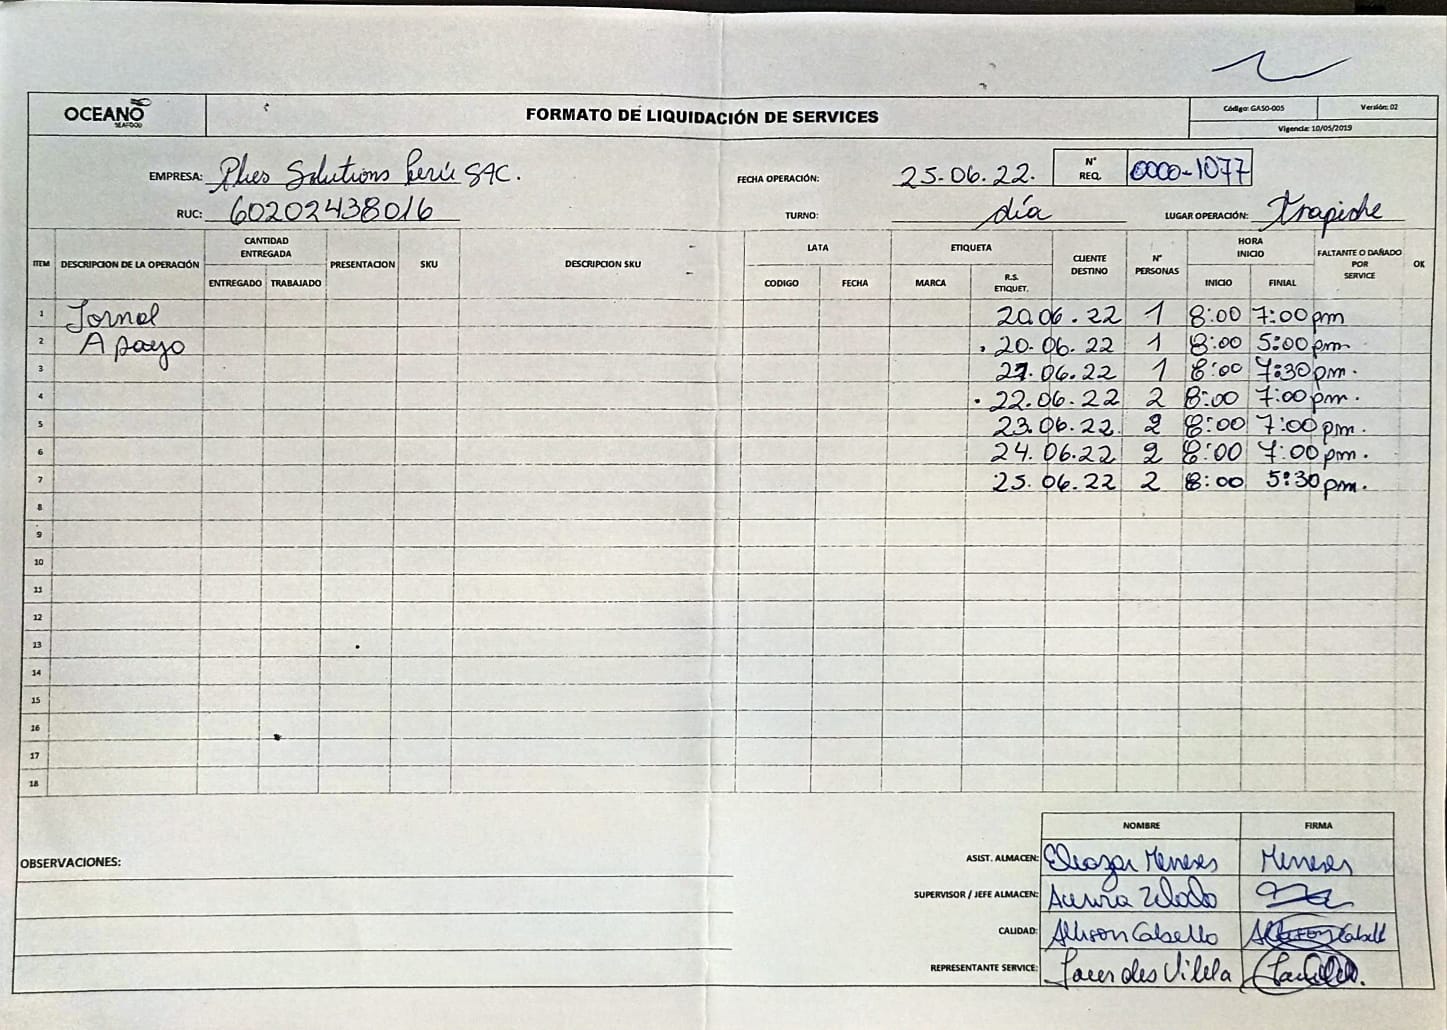 OCEANO
SEAFOOD
FORMATO DE LIQUIDACIÓN DE SERVICES
Código: GASO-005
Versión: 02
Vigencia: 10/05/2019
EMPRESA: Plies Solutions Perú SAC.
FECHA OPERACIÓN: 25.06.22.
N° REQ. 0000-1077
RUC: 60202438016
TURNO: día
LUGAR OPERACIÓN: Trapiche
ITEM DESCRIPCION DE LA OPERACIÓN CANTIDAD ENTREGADA ENTREGADO TRABAJADO PRESENTACION SKU DESCRIPCION SKU LATA CODIGO FECHA ETIQUETA MARCA R.S. ETIQUET. CLIENTE DESTINO N° PERSONAS HORA INICIO INICIO FINIAL FALTANTE O DAÑADO POR SERVICE OK
1 Jornal 20.06.22 1 8:00 7:00pm
2 Apoyo 20.06.22 1 8:00 5:00pm
3 21.06.22 1 8:00 7:30pm.
4 22.06.22 2 8:00 7:00pm.
5 23.06.22 2 8:00 7:00pm.
6 24.06.22 2 8:00 7:00pm.
7 25.06.22 2 8:00 5:30pm.
8
9
10
11
12
13
14
15
16
17
18
NOMBRE FIRMA
OBSERVACIONES:
ASIST. ALMACEN: Eleazar Meneses Meneses
SUPERVISOR / JEFE ALMACEN:
CALIDAD: Allison Cabello
REPRESENTANTE SERVICE: Lourdes Vilela